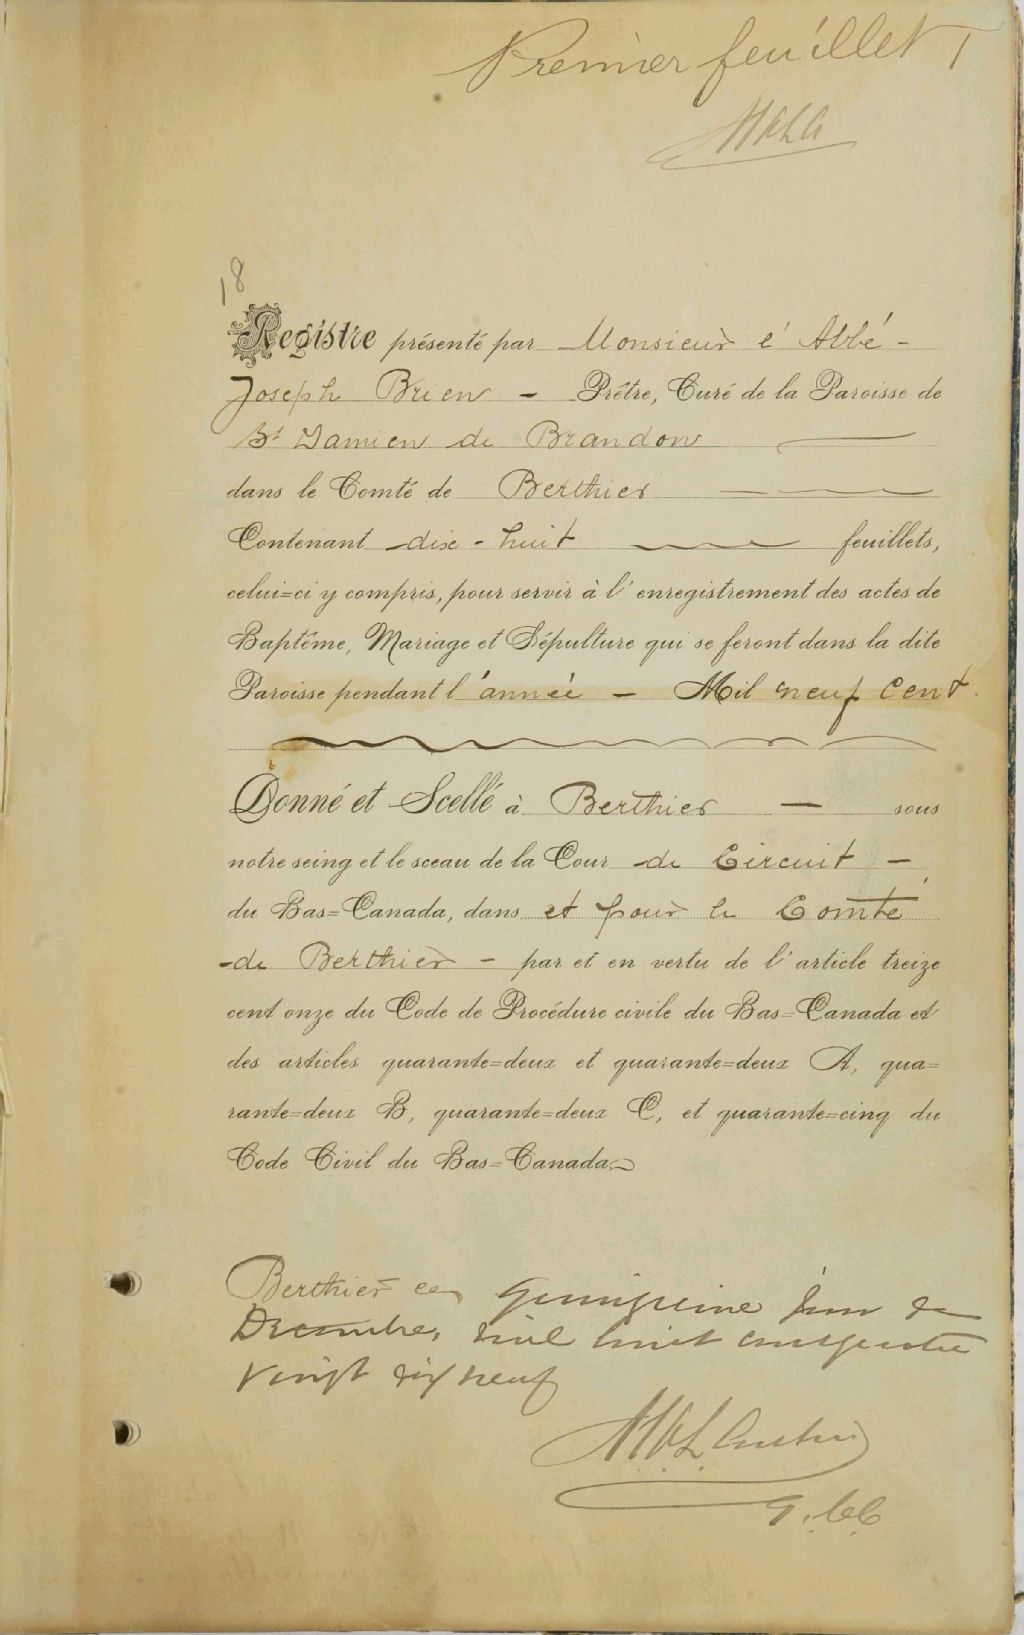 Premier feuillet 1
18
Registre présenté par Monsieur l'Abbé -
Joseph Brien - Prêtre, Curé de la Paroisse de
St Damien de Brandon
dans le Comté de Berthier
Contenant dix-huit feuillets,
celui=ci y compris, pour servir à l'enregistrement des actes de
Baptême, Mariage et Sépulture qui se feront dans la dite
Paroisse pendant l'année - Mil neuf cent.
Donné et Scellé à Berthier - sous
notre seing et le sceau de la Cour de Circuit -
du Bas=Canada, dans et pour le Comté
de Berthier - par et en vertu de l'article treize
cent onze du Code de Procédure civile du Bas=Canada et
des articles quarante=deux et quarante=deux A, qua=
rante=deux B, quarante=deux C, et quarante=cinq du
Code Civil du Bas=Canada.
Berthier ce quinzieme jour de
Decembre, mil huit cent quatre
vingt dix neuf
G.C.C.